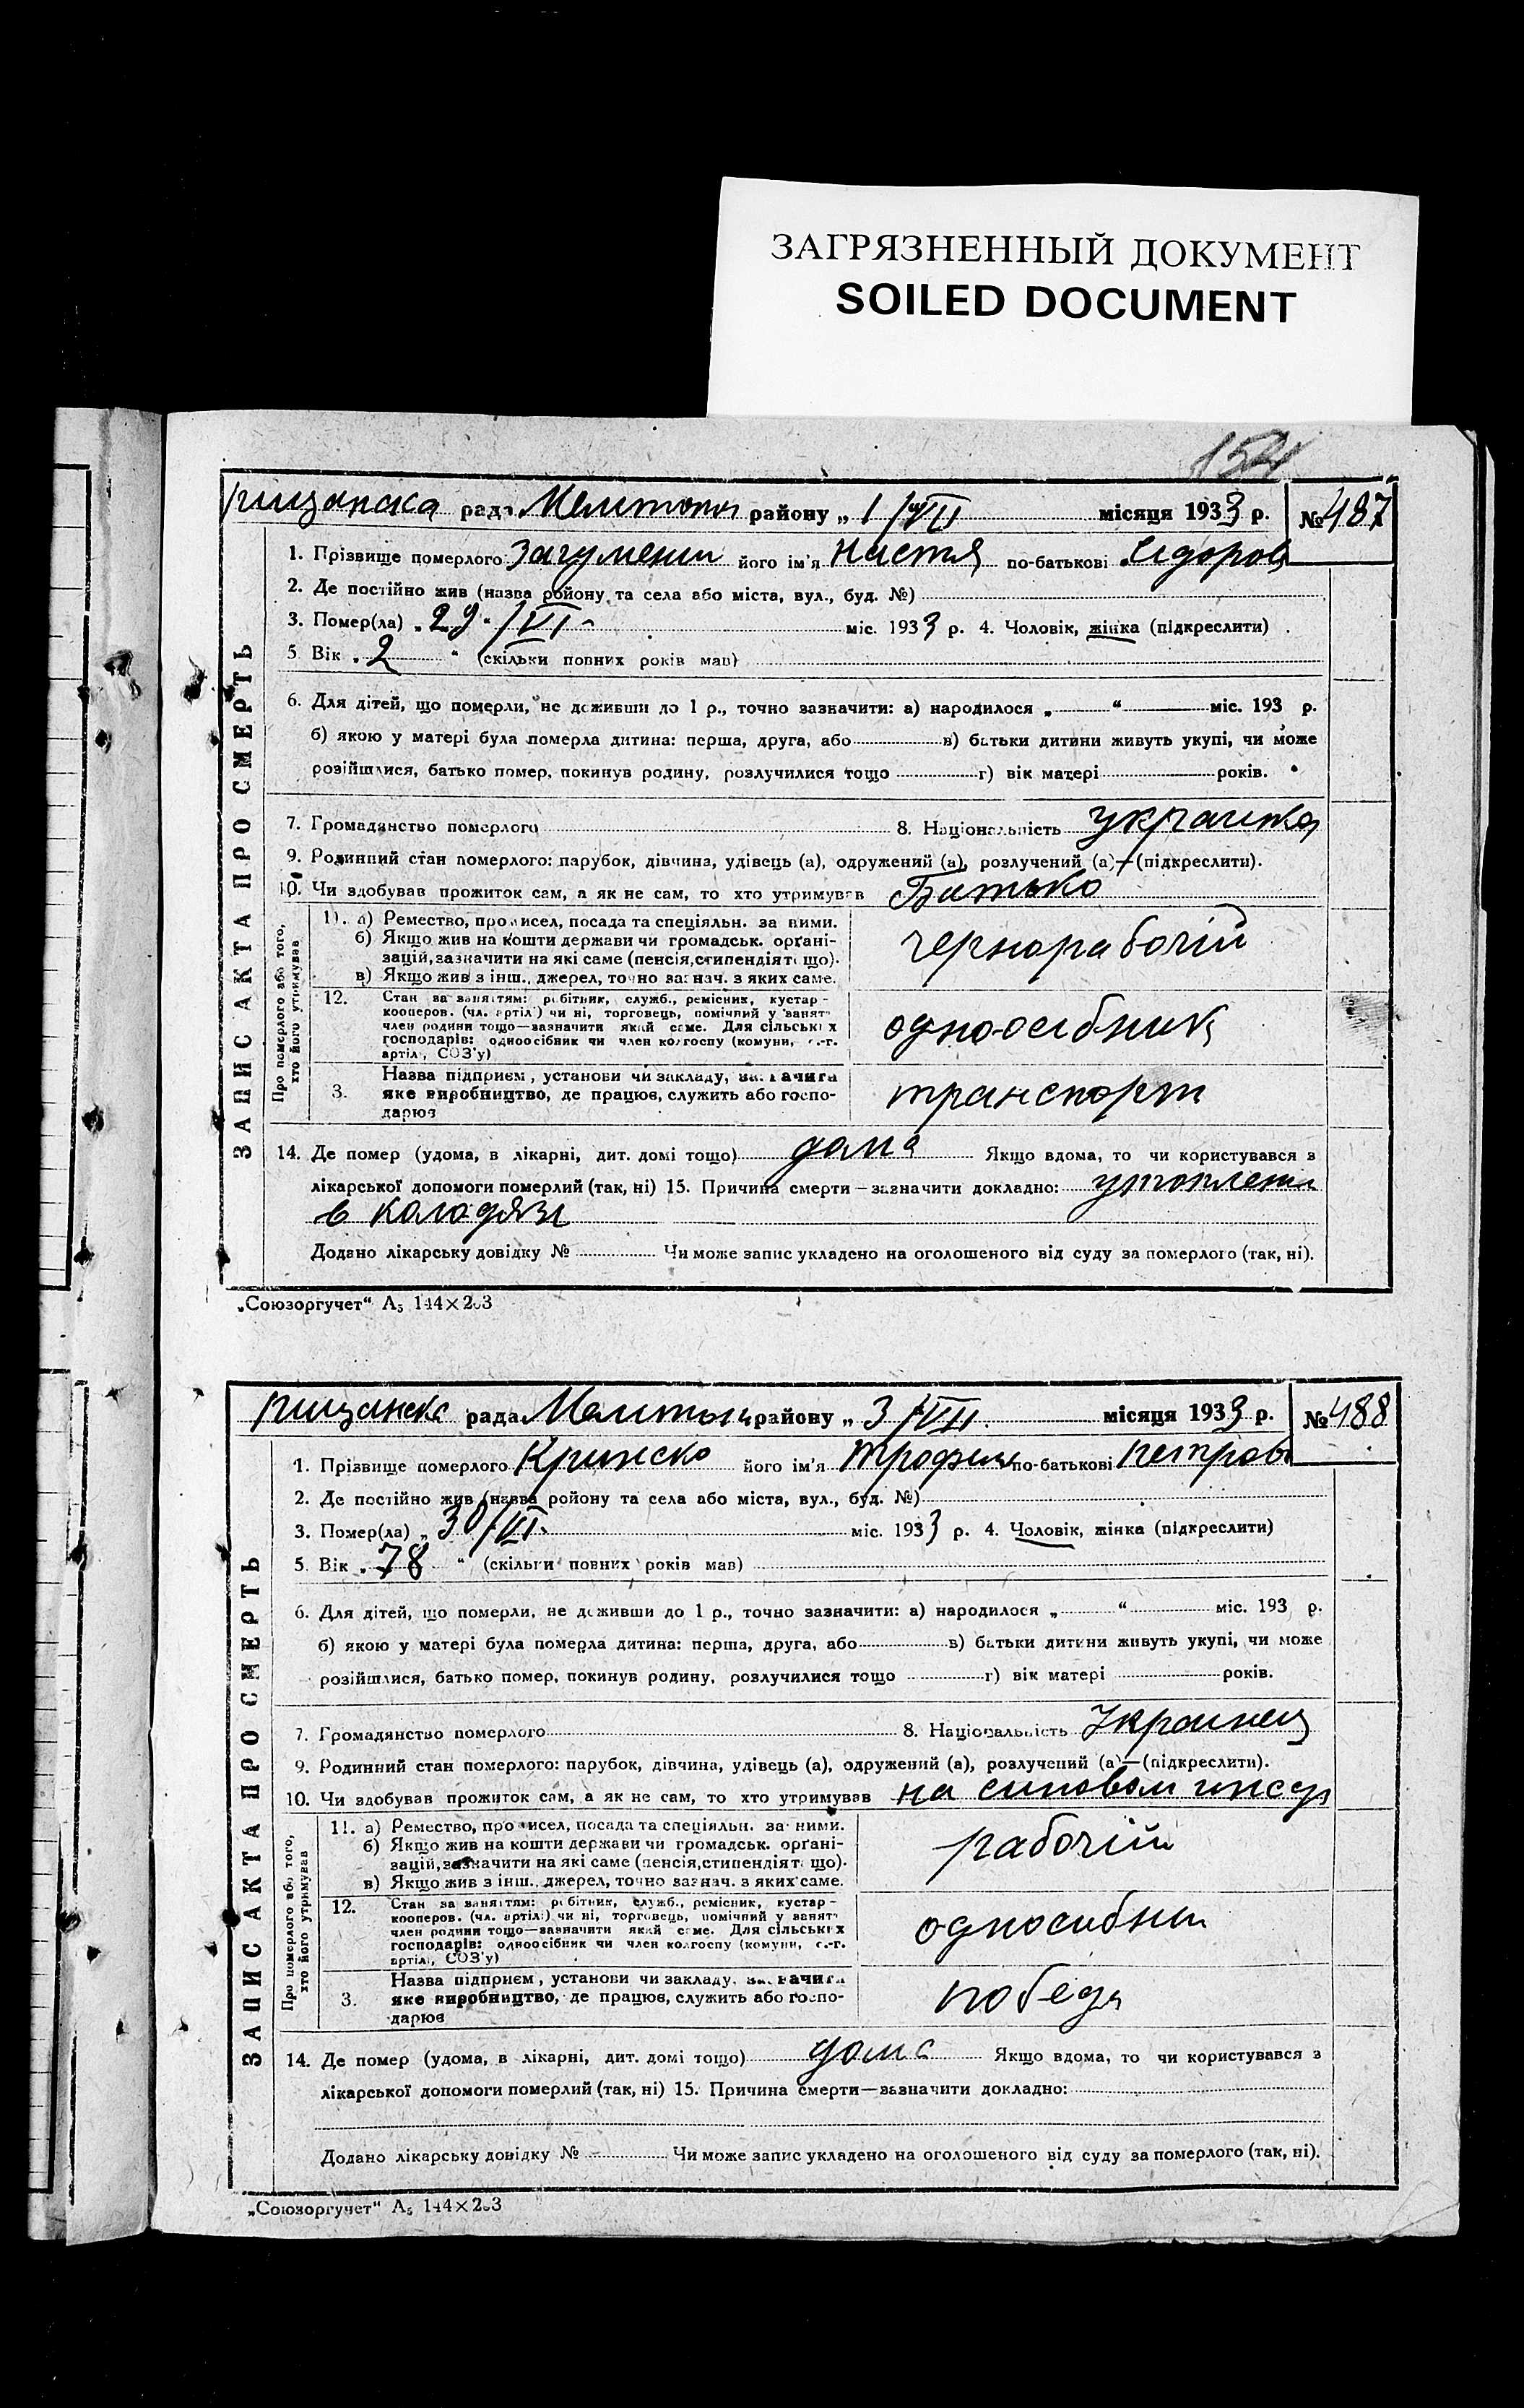 ЗАГРЯЗНЕННЫЙ ДОКУМЕНТ
SOILED DOCUMENT
154
рада Мелитоп району „ 1 /VII місяця 1933 р. №487
ЗАПИС АКТА ПРО СМЕРТЬ
1. Прізвище померлого Загумени його ім'я Настя по-батькові Сидоров
2. Де постійно жив (назва ройону та села або міста, вул., буд. №)
3. Помер(ла) „29" /VI міс. 1933 р. 4. Чоловік, жінка (підкреслити)
5 Вік „ 2 " (скільки повних років мав)
6. Для дітей, що померли, не доживши до 1 р., точно зазначити: а) народилося „ " міс. 193 р.
б) якою у матері була померла дитина: перша, друга, або в) батьки дитини живуть укупі, чи може
розійшлися, батько помер, покинув родину, розлучилися тощо г) вік матері років.
7. Громадянство померлого 8. Національність украинка
9. Родинний стан померлого: парубок, дівчина, удівець (а), одружений (а), розлучений (а)—(підкреслити).
10. Чи здобував прожиток сам, а як не сам, то хто утримував Батько
Про померлого або того, хто його утримував
11. а) Ремество, промисел, посада та спеціяльн. за ними.
б) Якщо жив на кошти держави чи громадськ. орґані-
зацій, зазначити на які саме (пенсія, стипендія тощо).
в) Якщо жив з інш. джерел, точно зазнач. з яких саме.
чернорабочій
12. Стан за заняттям: робітник, служб., ремісник, кустар-
кооперов. (чл. артілі) чи ні, торговець, помічний у занятт.
член родини тощо—зазначити який саме. Для сільських
господарів: одноосібник чи член колгоспу (комуни, с.-г.
артілі, СОЗ'у)
одноосибник
3. Назва підприєм, установи чи закладу, зазначити
яке виробництво, де працює, служить або госпо-
дарює
транспорт
14. Де помер (удома, в лікарні, дит. домі тощо) дома Якщо вдома, то чи користувався з
лікарської допомоги померлий (так, ні) 15. Причина смерти—зазначити докладно: утоплени
в колодязі
Додано лікарську довідку № Чи може запис укладено на оголошеного від суду за померлого (так, ні).
„Союзоргучет" А5 144×203
рада Мелитоп району „ 3 /VII місяця 1933 р. №488
ЗАПИС АКТА ПРО СМЕРТЬ
1. Прізвище померлого його ім'я Трофим по-батькові Петров
2. Де постійно жив (назва ройону та села або міста, вул., буд. №)
3. Помер(ла) „ 30/VI міс. 1933 р. 4. Чоловік, жінка (підкреслити)
5. Вік „ 78 " (скільки повних років мав)
6. Для дітей, що померли, не доживши до 1 р., точно зазначити: а) народилося „ " міс. 193 р.
б) якою у матері була померла дитина: перша, друга, або в) батьки дитини живуть укупі, чи може
розійшлися, батько помер, покинув родину, розлучилися тощо г) вік матері років.
7. Громадянство померлого 8. Національність Украинец
9. Родинний стан померлого: парубок, дівчина, удівець (а), одружений (а), розлучений (а)—(підкреслити).
10. Чи здобував прожиток сам, а як не сам, то хто утримував на
Про померлого або того, хто його утримував
11. а) Ремество, промисел, посада та спеціяльн. за ними.
б) Якщо жив на кошти держави чи громадськ. орґані-
зацій, зазначити на які саме (пенсія, стипендія тощо).
в) Якщо жив з інш. джерел, точно зазнач. з яких саме.
рабочій
12. Стан за заняттям: робітник, служб., ремісник, кустар-
кооперов. (чл. артілі) чи ні, торговець, помічний у занятт.
член родини тощо—зазначити який саме. Для сільських
господарів: одноосібник чи член колгоспу (комуни, с.-г.
артілі, СОЗ'у)
односибни
3. Назва підприєм, установи чи закладу, зазначити
яке виробництво, де працює, служить або госпо-
дарює
победа
14. Де помер (удома, в лікарні, дит. домі тощо) дома Якщо вдома, то чи користувався з
лікарської допомоги померлий (так, ні) 15. Причина смерти—зазначити докладно:
Додано лікарську довідку № Чи може запис укладено на оголошеного від суду за померлого (так, ні).
„Союзоргучет" А5 144×203